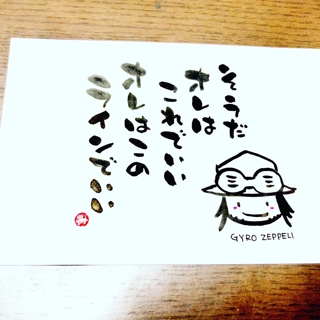 そうだ
オレは
これでいい
オレはこの
ラインでいい
GYRO ZEPPELI